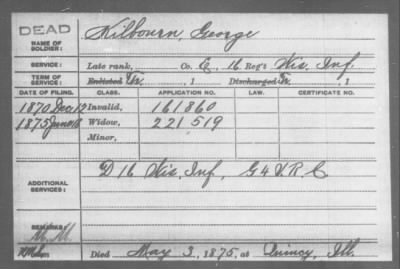 DEAD
NAME OF SOLDIER: Kilbourn, George
SERVICE: Late rank, Co. E, 16 Reg't Wis. Inf.
TERM OF SERVICE: Enlisted Tr. , 1 Discharged Tr. , 1
DATE OF FILING. CLASS. APPLICATION NO. LAW. CERTIFICATE NO.
1870 Dec 12 Invalid, 161860
1875 June 16 Widow, 221519
Minor,
ADDITIONAL SERVICES: D 16 Wis. Inf, G 4 V.R.C
REMARKS:
Died May 3, 1875, at Quincy, Ill.